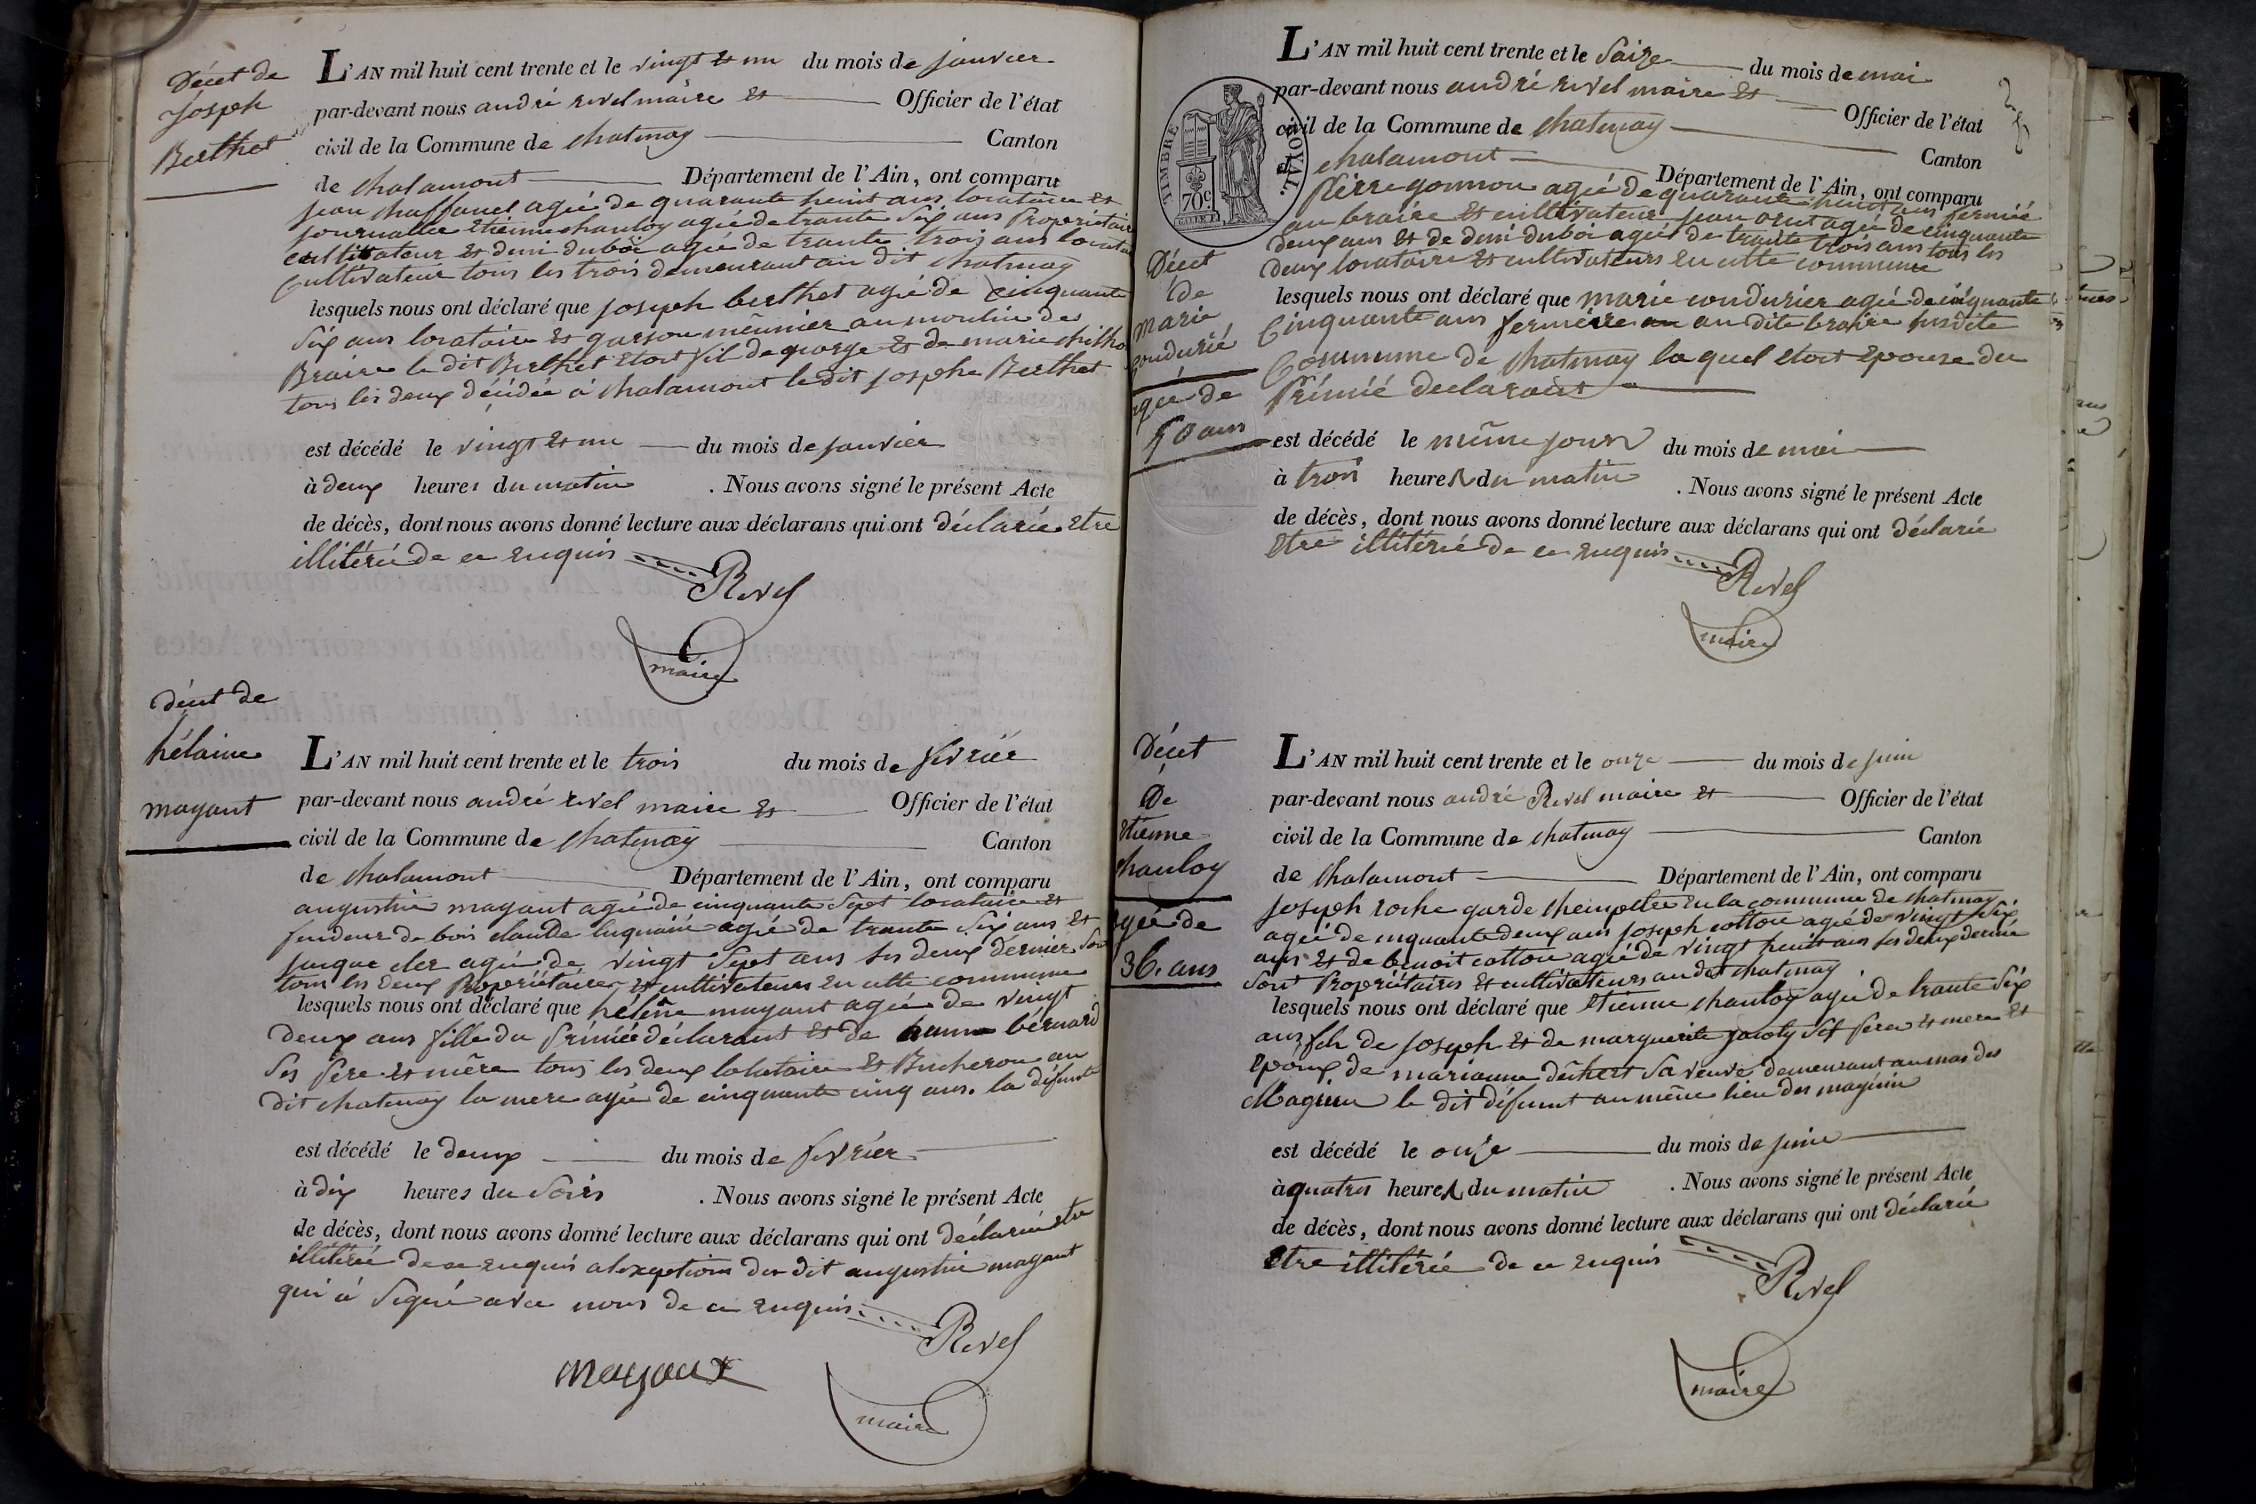 Décet de
Joseph
Berthet
L'AN mil huit cent trente et le vingt et un du mois de janvier
par-devant nous andré revel maire et Officier de l'état
civil de la Commune de chatenay Canton
de chalamont Département de l'Ain, ont comparu
jean chaffanel agée de quarante heuit ans locataire et
journallie etienne chanloy agée de trante six ans Propriétaire
cultivateur et deni duboi agée de trante trois ans locataire
Cultivateur tous les trois demeurant au dit chatenay
lesquels nous ont déclaré que joseph berthet agée de cinquante
six ans locataire et garson meûnier au moulin de
Braire le dit Berthet etoit fil de george et de marie
tous les deux décédée à chalamont le dit josephe Berthet
est décédé le vingt et un du mois de janvier
à deux heures du matin . Nous avons signé le présent Acte
de décès, dont nous avons donné lecture aux déclarans qui ont déclarée etre
illitérée de ce enquis
Revel
maire
Décet de
hélaine
mayant
L'AN mil huit cent trente et le trois du mois de fevriér
par-devant nous andré revel maire et Officier de l'état
civil de la Commune de chatenay Canton
de chalamont Département de l'Ain, ont comparu
augustin mayant agée de cinquante sept locataire et
fendeur de bois claude agée de trante six ans et
jacque cler agée de vingt sept ans les deux dernier sont
tous les deux Propriétaires et cultivateurs en cette commune
lesquels nous ont déclaré que heléne mayant agée de vingt
deux ans fille du prémiée déclarant et de bérnard
Ses pere et mêre tous les deux locataire et Bucheron au
dit chatenay la mere agée de cinquante cinq ans. la défunte
est décédé le deux du mois de fevriér
à dix heures du soirs . Nous avons signé le présent Acte
de décès, dont nous avons donné lecture aux déclarans qui ont déclarée etre
illitérée de ce enquis alexeption du dit augustin mayant
qui à signé avec nous de ce enquis
Revel
mayant
maire
TIMBRE ROYAL.
70c
L'AN mil huit cent trente et le saize du mois de mai
par-devant nous andré revel maire et Officier de l'état
civil de la Commune de chatenay Canton
de chalamont Département de l'Ain, ont comparu
Pierre gonnon agée de quarante heuit ans fermié
au braire et cultivateur jean agée de cinquante
deux ans et de deni duboi agée de trante trois ans tous les
deux locataire et cultivateurs en cette commune
Décet
de
marie
condurié
agée de
50 ans
lesquels nous ont déclaré que marie condurier agée de cinquante
Cinquante ans fermiere au dite braire susdite
Commune de chatenay la quel etoit epouse du
Prémié declarant
est décédé le même jour du mois de mai
à troi heures du matin . Nous avons signé le présent Acte
de décès, dont nous avons donné lecture aux déclarans qui ont déclarée
etre illitérée de ce enquis
Revel
maire
Décet
De
etienne
chanloy
agée de
36. ans
L'AN mil huit cent trente et le onze du mois de juin
par-devant nous andré Revel maire et Officier de l'état
civil de la Commune de chatenay Canton
de Chalamont Département de l'Ain, ont comparu
joseph roche garde cheimpetre en la commune de chatenay
agée de cinquante deux ans joseph cotton agée de vingt six
ans et de benoit cotton agée de vingt heuit ans les deux dernier
sont Propriétaires et cultivateurs au dit chatenay
lesquels nous ont déclaré que etienne chanloy agée de trante six
ans fils de joseph et de marguerite ses pere et mere et
epoux de marianne sa veuve demeurant au mas des
Magnin le dit défunt au même lieu des magnin
est décédé le onze du mois de juin
à quatres heures du matin . Nous avons signé le présent Acte
de décès, dont nous avons donné lecture aux déclarans qui ont déclarée
etre illitérée de ce enquis
Revel
maire